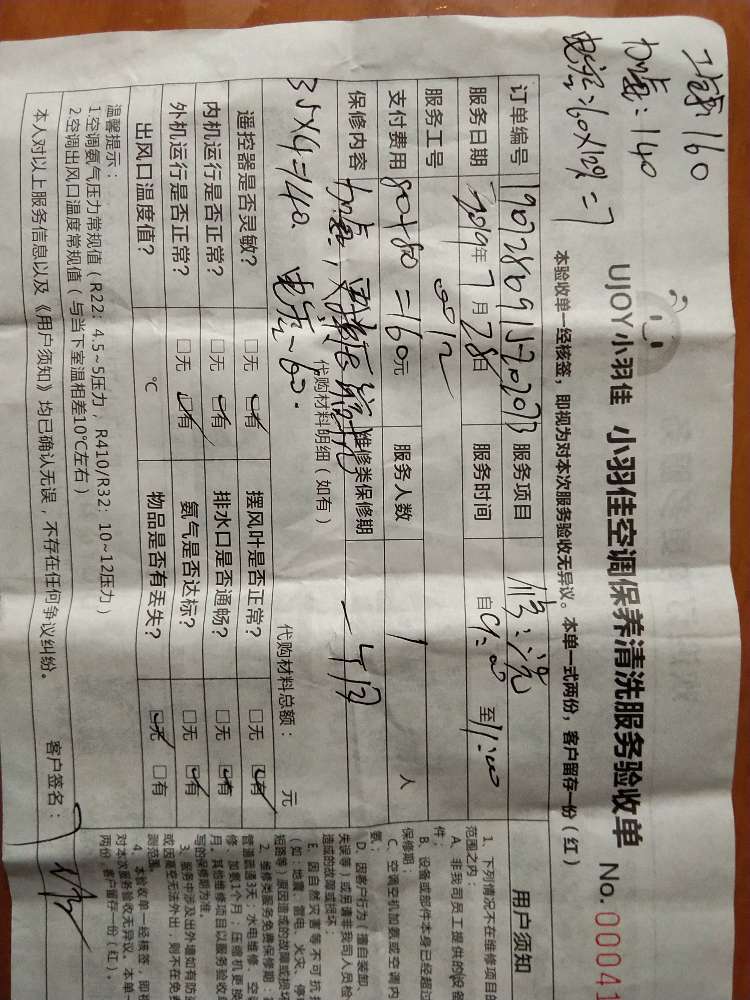 工费:160
加氟:140
电容:60×12% = 7
UJOY小羽佳 小羽佳空调保养清洗服务验收单 No. 00041
本验收单一经核签，即视为对本次服务验收无异议。本单一式两份，客户留存一份（红）
订单编号 服务项目 修：洗
服务日期 2019年7月28日 服务时间 自9:00 至11:00
服务工号 0012
支付费用 80+80=160元 服务人数 1 人
保修内容 加氟， 维修类保修期 一个月
代购材料明细（如有） 代购材料总额： 元
35×4=140. 电容-60.
遥控器是否灵敏? □无 □有 摆风叶是否正常? □无 □有
内机运行是否正常? □无 □有 排水口是否通畅? □无 □有
外机运行是否正常? □无 □有 氨气是否达标? □无 □有
出风口温度值? ℃ 物品是否有丢失? □无 □有
温馨提示：
1空调氨气压力常规值（R22: 4.5~5压力，R410/R32: 10~12压力）
2.空调出风口温度常规值（与当下室温相差10℃左右）
本人对以上服务信息以及《用户须知》均已确认无误，不存在任何争议纠纷。 客户签名：
用户须知
1、下列情况不在维修项目的
范围之内：
A. 非我司员工提供的设备
B. 设备或部件本身已经超过
保修期；
C. 空调空机加氨或空调内
氨。
D. 因客户行为（擅自装卸、
失误等）或另请非我司人员检
造成的故障或损坏；
E. 因自然灾害等不可抗
（如：地震、雷电、火灾、停
短路等）原因造成的故障或损坏
2. 维修类服务免费保修期：
管道疏通3天；水电维修、空
修、加氨1个月；压缩机更换
月。其他维修项目以服务验收
写的保修期为准。
3. 服务中涉及出外墙如有防
或因高空无法外出，则不在免费
测范围
4. 本验收单一经核签，即视
对本次服务验收无异议。本单一
两份，客户留存一份（红）。